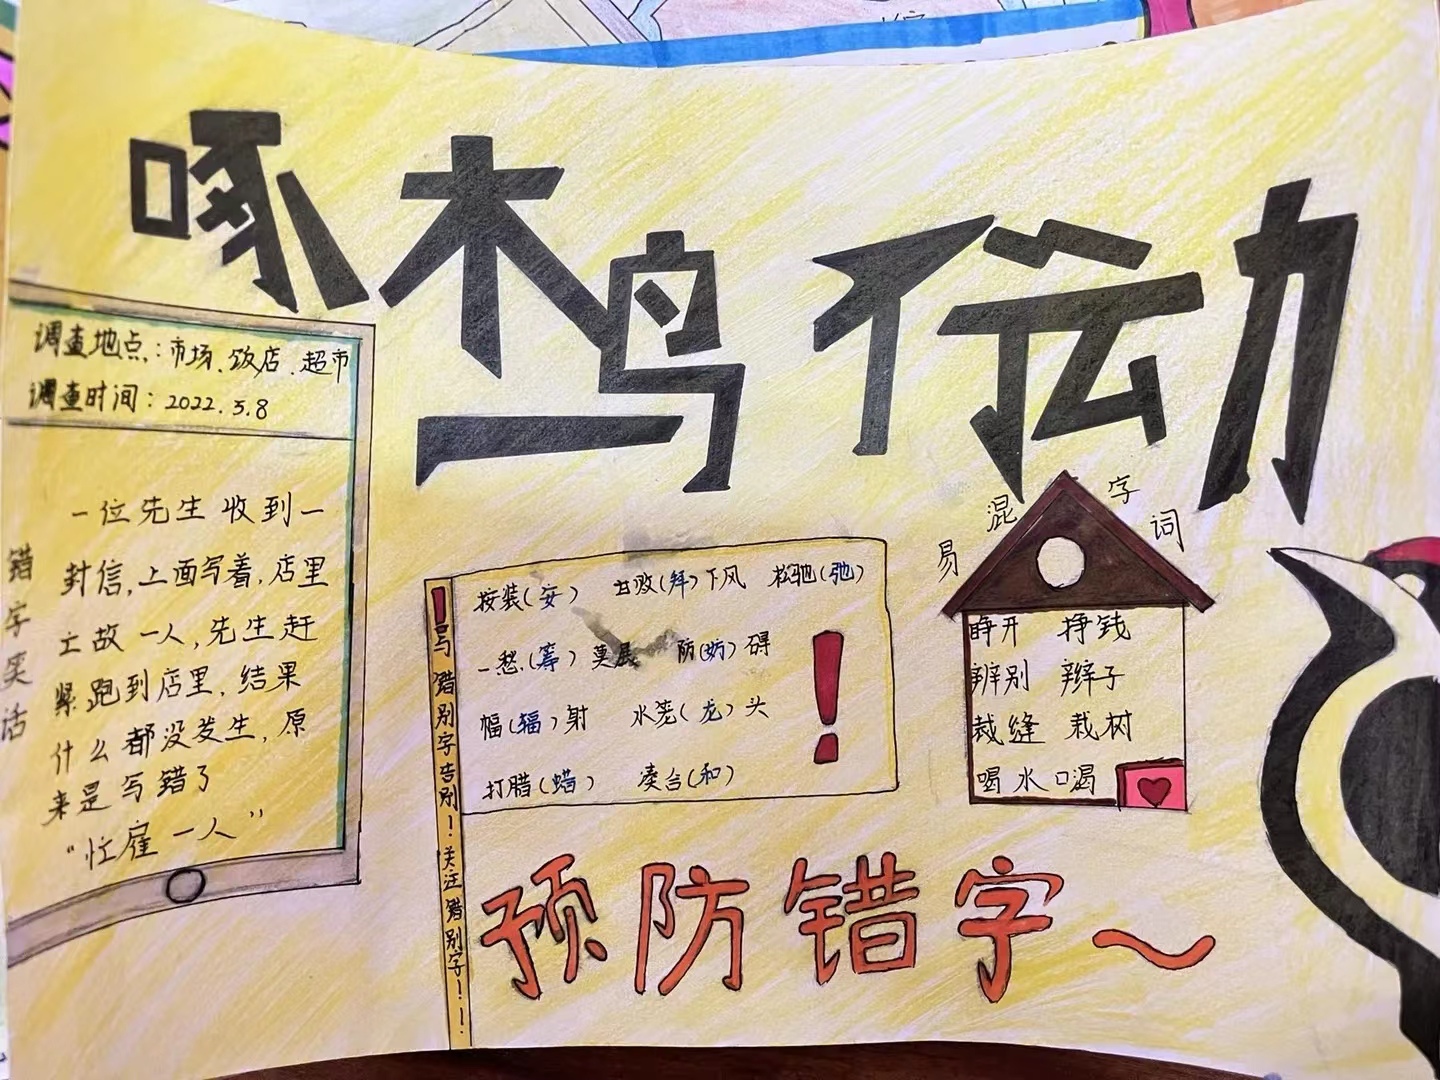 啄木鸟行动
调查地点:市场、饭店、超市
调查时间:2022.5.8
错字笑话
一位先生收到一
封信,上面写着,店里
亡故一人,先生赶
紧跑到店里,结果
什么都没发生,原
来是写错了
“忙雇一人”
与错别字告别!关注错别字!!!
按装(安) 甘败(拜)下风 松驰(弛)
一愁(筹)莫展 防(妨)碍
幅(辐)射 水笼(龙)头
打腊(蜡) 凑合(和)
易混字词
睁开 挣钱
辨别 辫子
裁缝 栽树
喝水 口渴
预防错字~